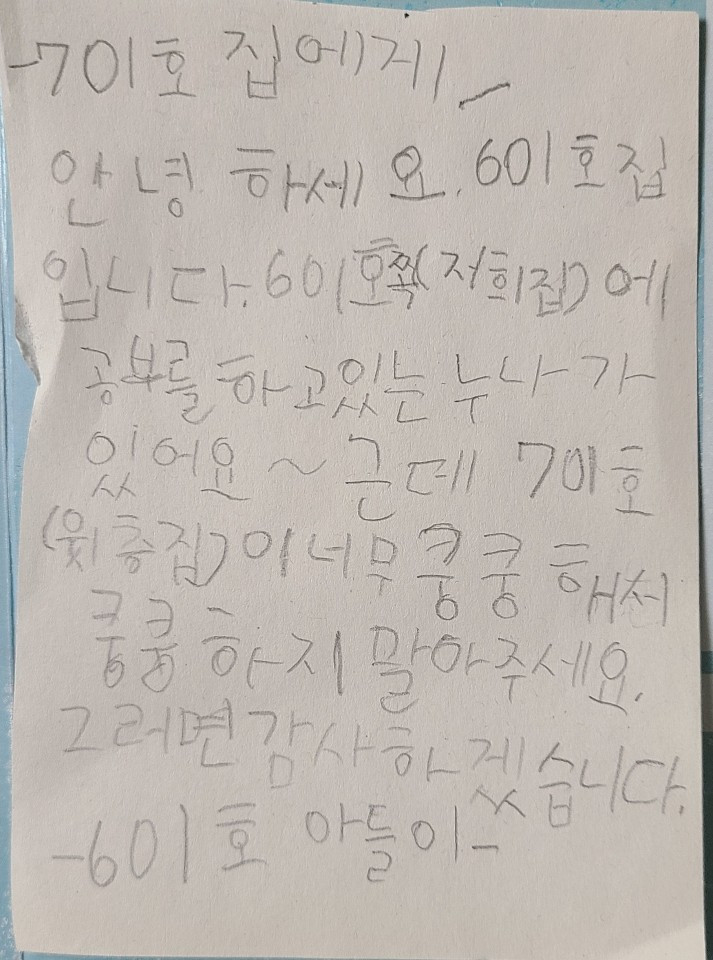 -701호 집에게-
안녕 하세요. 601호집
입니다. 601호쪽(저희집)에
공부를 하고있는 누나가
있어요~ 근데 701호
(윗층집)이 너무 쿵쿵 해서
쿵쿵 하지 말아주세요.
그러면 감사하겠습니다.
-601호 아들이-